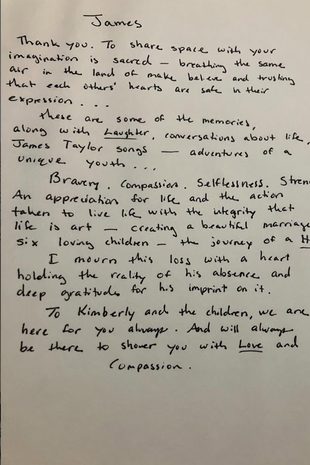 James
Thank you. To share space with your
imagination is sacred — breathing the same
air in the land of make believe and trusting
that each others' hearts are safe in their
expression...
these are some of the memories,
along with Laughter, conversations about life,
James Taylor songs — adventures of a
unique youth...
Bravery. Compassion. Selflessness. Stren
An appreciation for life and the action
taken to live life with the integrity that
life is art — creating a beautiful marriage
six loving children — the journey of a H
I mourn this loss with a heart
holding the reality of his absence and
deep gratitude for his imprint on it.
To Kimberly and the children, we are
here for you always. And will always
be there to shower you with Love and
Compassion.